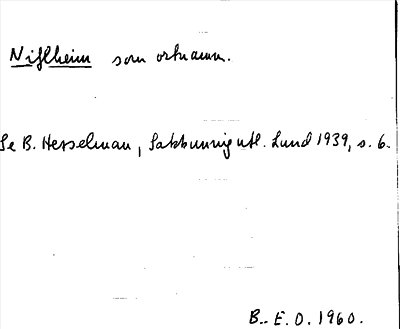 Niflheim som ortnamn.
Se B. Hesselman, Sakkunnigutl. Lund 1939, s. 6.
B. E. O. 1960.